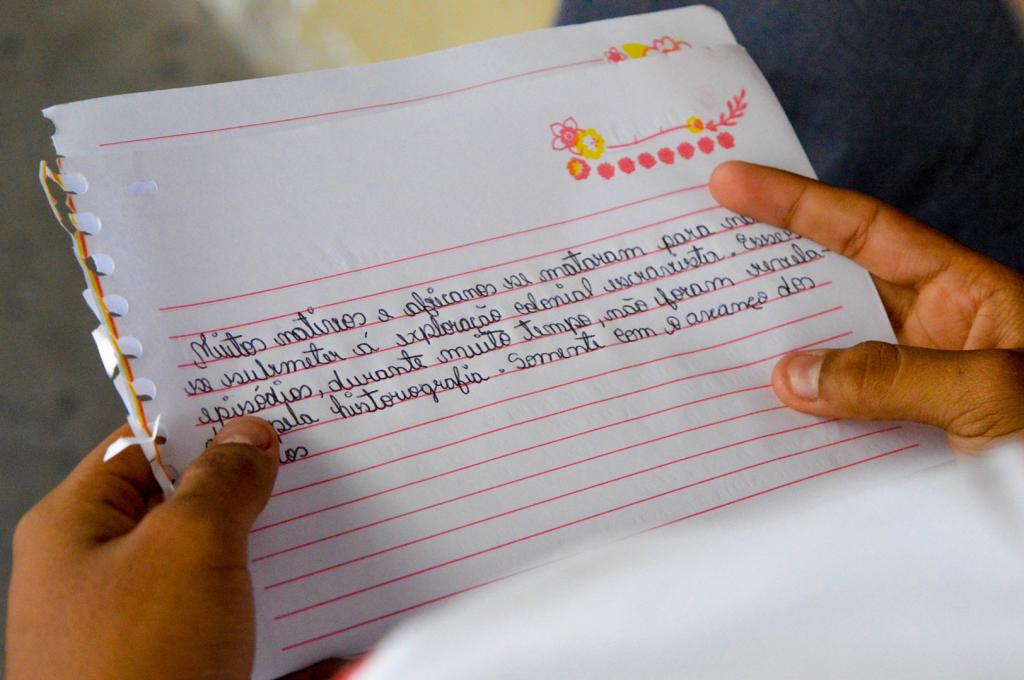 Muitos nativos e africanos se mataram para
se submeter á exploração colonial escravista. Esses
episódios, durante muito tempo, não foram revela-
pela historiografia. Somente com o avanço dos